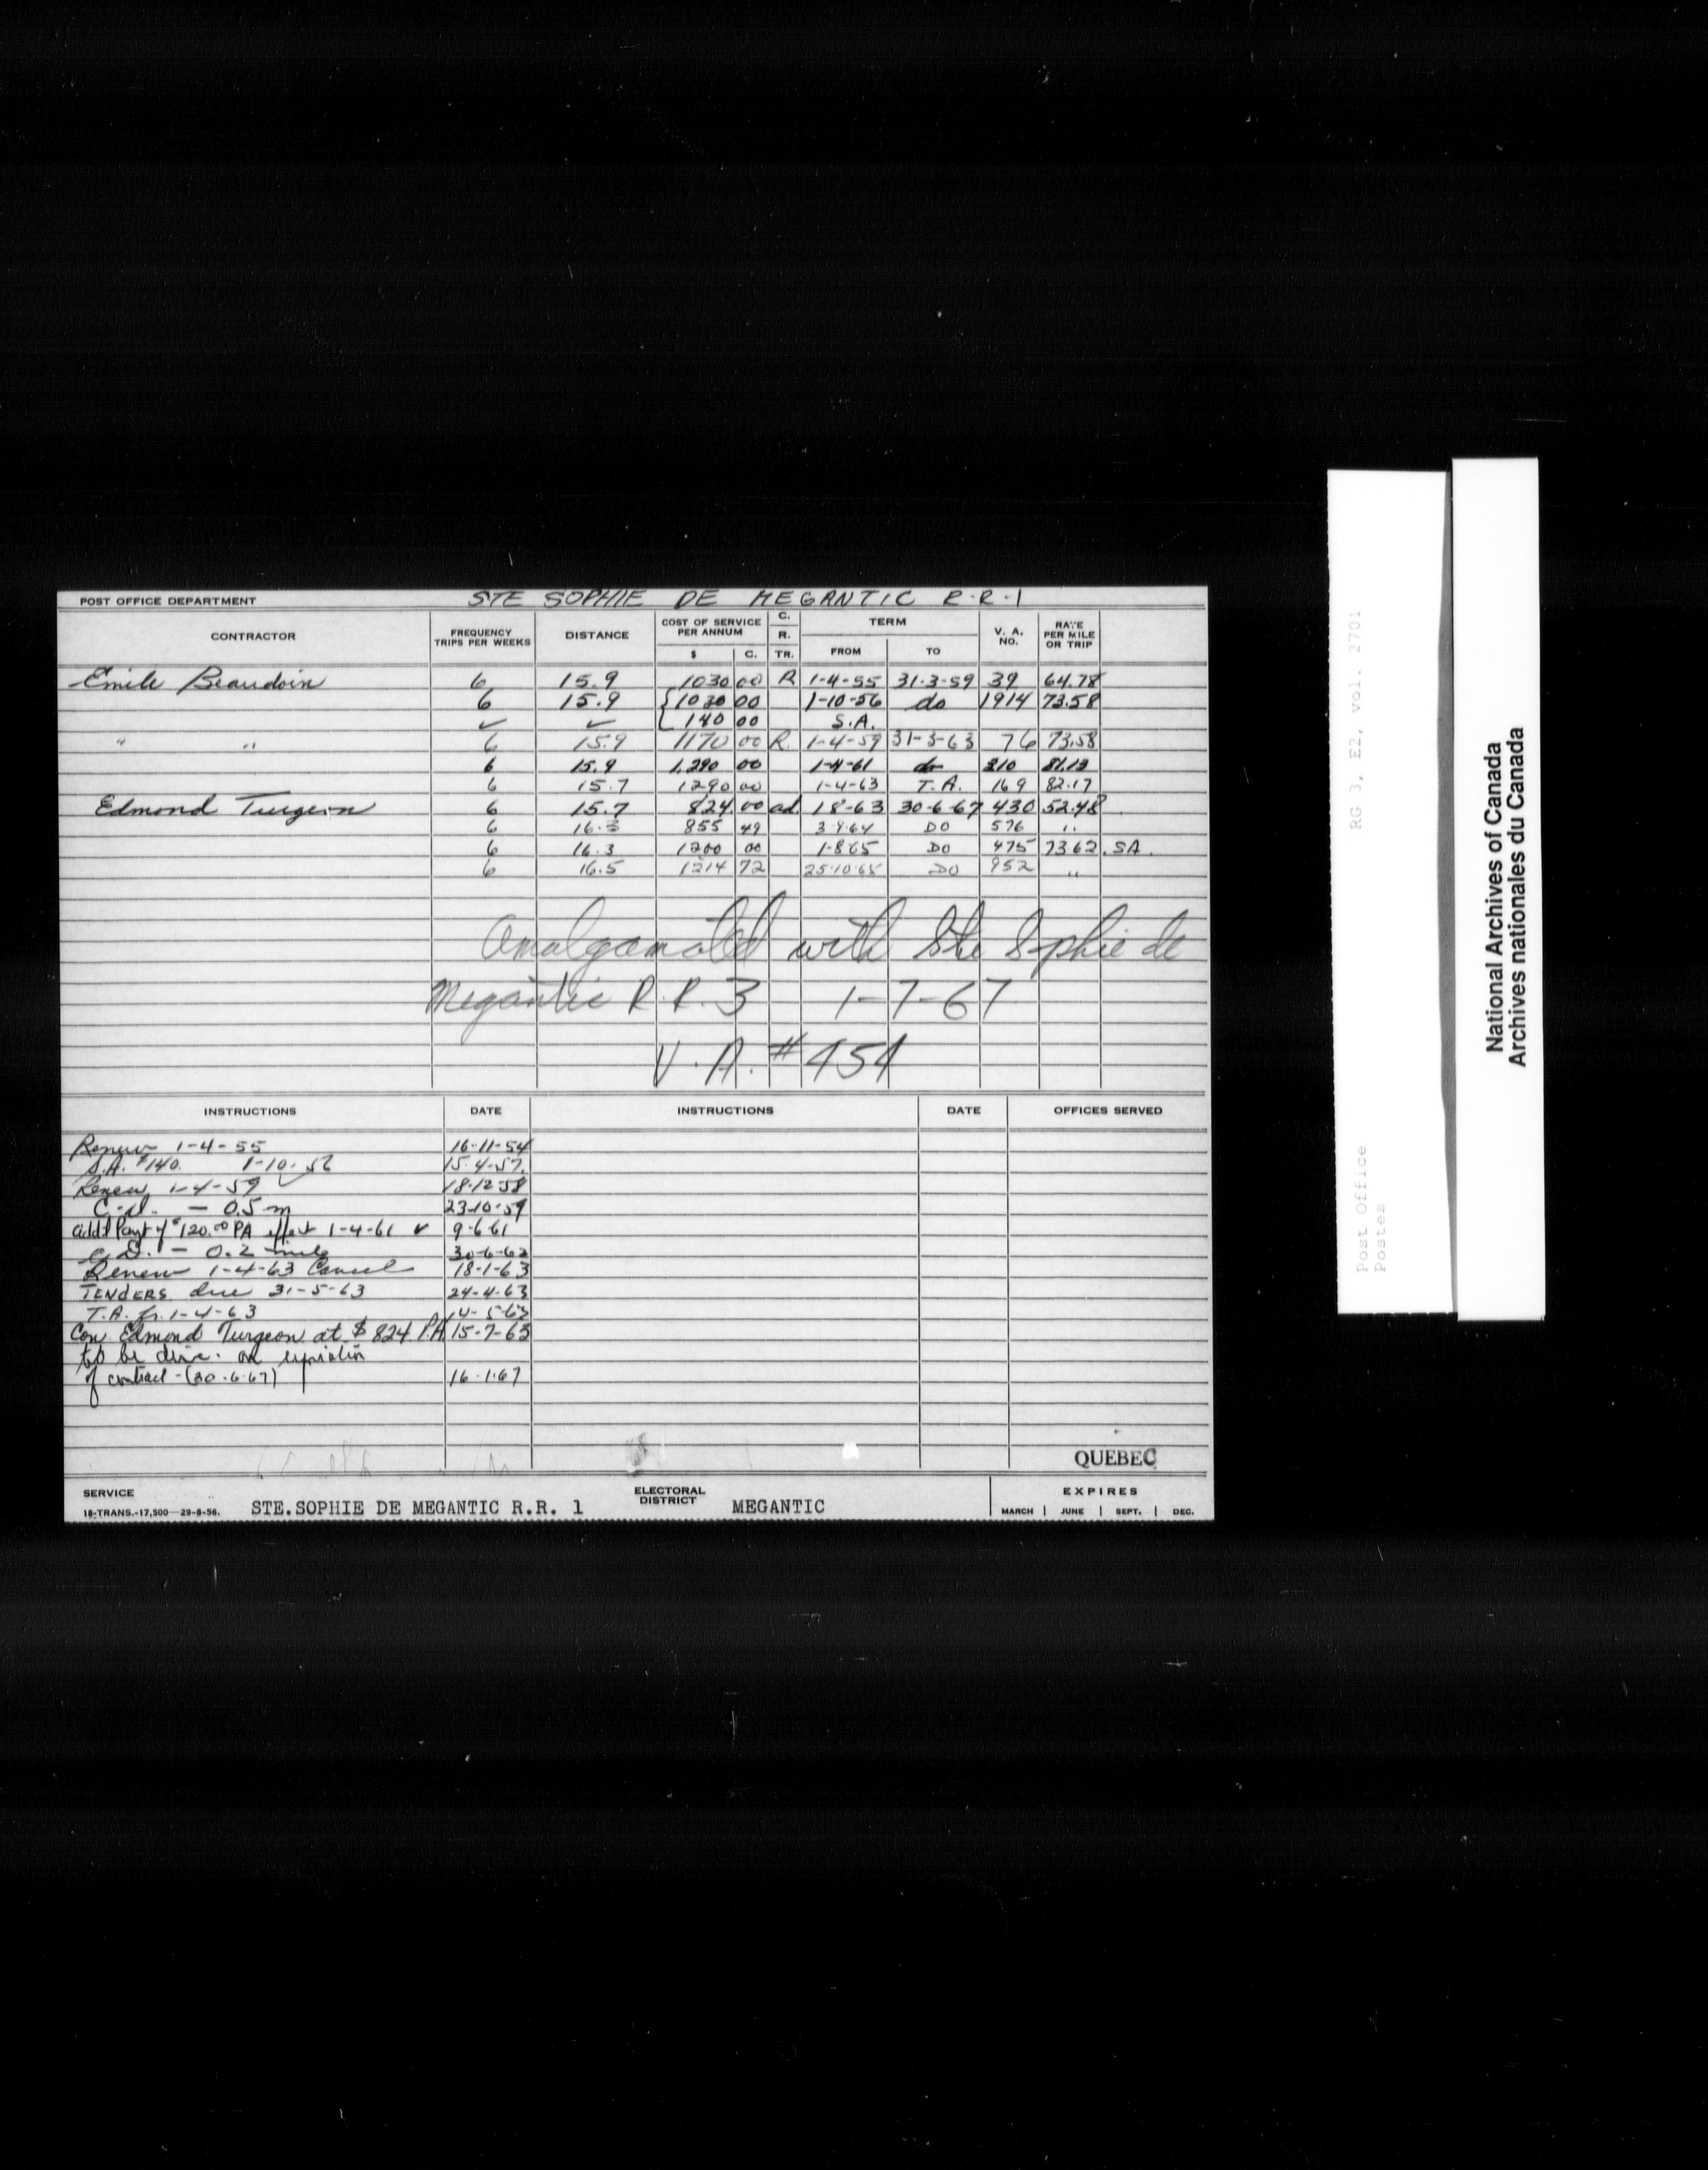 POST OFFICE DEPARTMENT STE SOPHIE DE MEGANTIC R-R-1
CONTRACTOR FREQUENCY TRIPS PER WEEKS DISTANCE COST OF SERVICE PER ANNUM $ C. C. R. TR. TERM FROM TO V. A. NO. RATE PER MILE OR TRIP
Emile Beaudoin 6 15.9 1030 00 R 1-4-55 31-3-59 39 64.78
6 15.9 1030 00 1-10-56 do 1914 73.58
✓ ✓ 140 00 S.A.
" " 6 15.9 1170 00 R. 1-4-59 31-3-63 76 73.58
6 15.9 1,290 00 1-4-61 do 210 81.13
6 15.7 1290 00 1-4-63 T.A. 169 82.17
Edmond Turgeon 6 15.7 824.00 ad. 1-8-63 30-6-67 430 52.48
6 16.3 855 49 3-9-64 DO 576 "
6 16.3 1200 00 1-8-65 DO 475 73.62 SA.
6 16.5 1214 72 25-10-65 DO 952 "
Amalgamated with Ste Sophie de
Megantic R.R. 3 1-7-67
V.A. # 454
INSTRUCTIONS DATE INSTRUCTIONS DATE OFFICES SERVED
Renew 1-4-55 16-11-54
S.A. $140. 1-10-56 15-4-57.
Renew 1-4-59 18-12-58
C.D. - 0.5 m 23-10-59
Add'l Payt of $120.00 PA effect 1-4-61 ✓ 9-6-61
C.D. - 0.2 mile 30-6-62
Renew 1-4-63 Cancel 18-1-63
TENDERS due 31-5-63 24-4-63
T.A. fr. 1-4-63 14-5-63
Con. Edmond Turgeon at $824 P.A. 15-7-63
to be disc. on expiration
of contract - (30-6-67) 16-1-67
QUEBEC
SERVICE
18-TRANS.-17,500—29-8-56. STE.SOPHIE DE MEGANTIC R.R. 1 ELECTORAL DISTRICT MEGANTIC EXPIRES MARCH | JUNE | SEPT. | DEC.
RG 3, E2, vol. 2701
Post Office
Postes
National Archives of Canada
Archives nationales du Canada